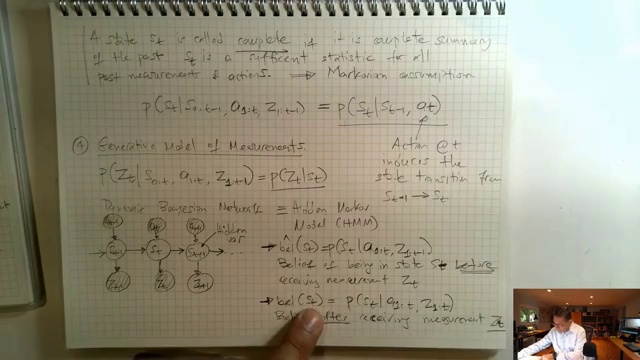 A state St is called complete if it is complete summary
of the past St is a sufficient statistic for all
past measurements & actions. → Markovian assumption
p(St|S0:t-1, a1:t, Z1:t-1) = p(St|St-1, at)
④ Generative Model of Measurements
Action @t
induces the
state transition from
St-1 → St
p(Zt|S0:t, a1:t, Z1:t-1) = p(Zt|St)
Dynamic Bayesian Networks ≡ Hidden Markov
Model (HMM)
Hidden
at
St-1 St St+1
Zt-1 Zt Zt+1
→ bel(St) = p(St|a1:t, Z1:t-1)
Belief of being in state St before
receiving measurement Zt
→ bel(St) = p(St|a1:t, Z1:t)
after receiving measurement Zt